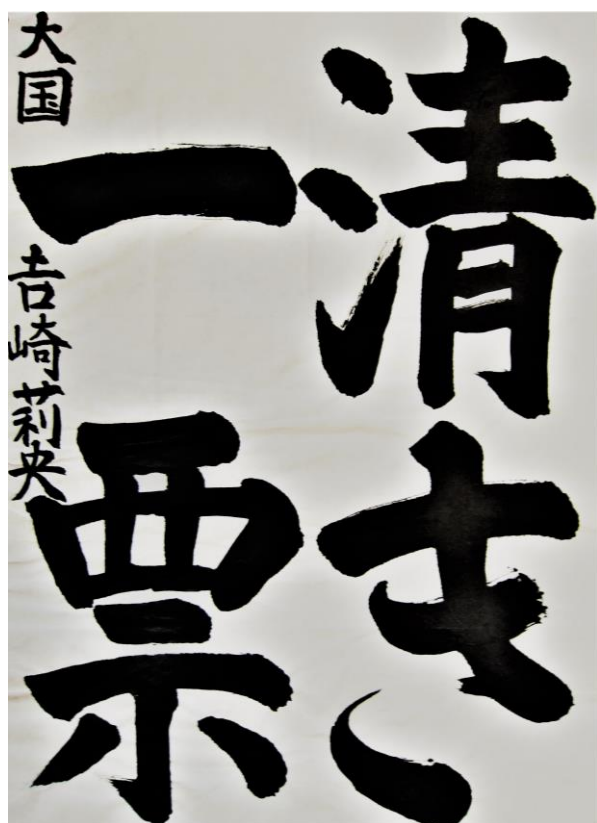 清き
一票
大国 吉崎莉央